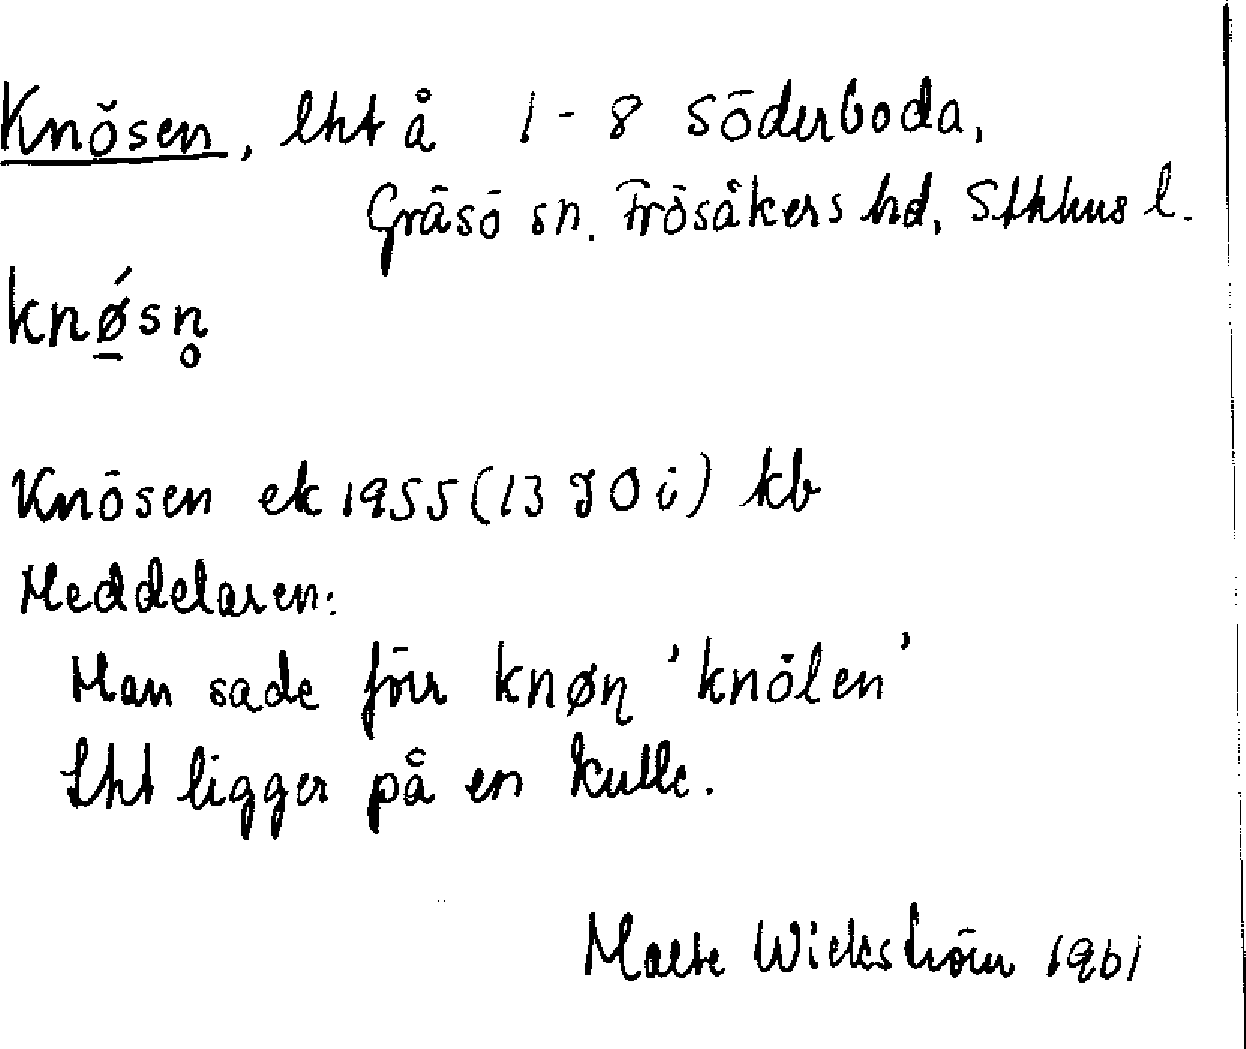 Knösen, lht å 1-8 Söderboda,
Gräsö sn. Frösåkers hd, Sthlms l.
knǿ̱sn̥
Knösen ek 1955 (13 J 0 i) kb
Meddelaren:
Man sade förr knøɳ 'knölen'
Lht ligger på en kulle.
Malte Wickström 1961